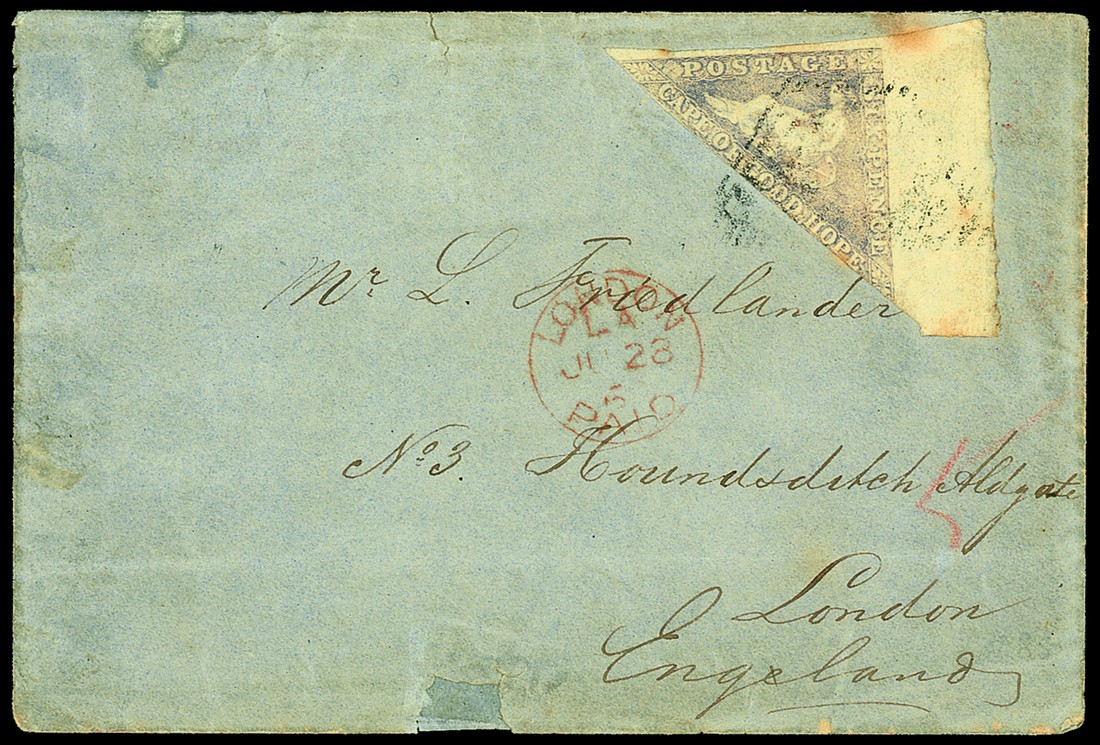 POSTAGE
CAPE OF GOOD HOPE
SIX PENCE
Mr. L. Friedlander
LONDON
JU 28
PAID
No. 3. Houndsditch Aldgate
London
Engeland